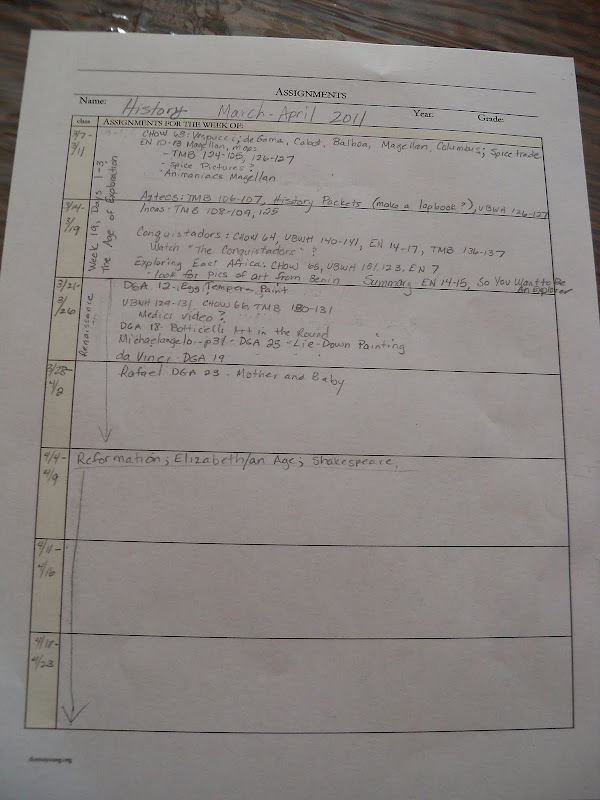 ASSIGNMENTS
Name: History March-April 2011 Year: Grade:
class ASSIGNMENTS FOR THE WEEK OF:
3/7-
3/11
Week 19, Days 1-3
The Age of Exploration
CHOW 63: Vespucci, deGama, Cabot, Balboa, Magellan, Columbus; Spice trade
EN 10-13 Magellan, maps
- TMB 124-125, 126-127
- Spice Pictures?
- Animaniacs Magellan
3/14-
3/19
Aztecs: TMB 106-107, History Pockets (make a lapbook?), UBWH 126-127
Incas: TMB 108-109, 125
Conquistadors: CHOW 64, UBWH 140-141, EN 14-17, TMB 136-137
Watch "The Conquistadors"?
Exploring East Africa: CHOW 65, UBWH 151, 123, EN 7
- look for pics of art from Benin Summary: EN 14-15, So You Want to Be An Explorer
3/21-
3/26
Renaissance
DGA 12 - Egg Tempera Paint
UBWH 129-131 CHOW 66, TMB 130-131
Medici video?
DGA 18 - Botticelli Art in the Round
Michaelangelo - p31 - DGA 25 - Lie-Down Painting
da Vinci - DGA 19
3/28-
4/2
Rafael DGA 23 - Mother and Baby
4/4-
4/9
Reformation; Elizabeth/an Age; Shakespeare
4/11-
4/16
4/18-
4/23